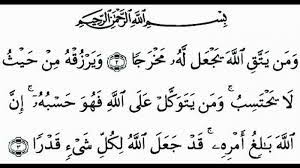 بِسْمِ اللَّهِ الرَّحْمَٰنِ الرَّحِيمِ
وَمَن يَتَّقِ اللَّهَ يَجْعَل لَّهُۥ مَخْرَجًا ﴿٢﴾ وَيَرْزُقْهُ مِنْ حَيْثُ
لَا يَحْتَسِبُ ۚ وَمَن يَتَوَكَّلْ عَلَى اللَّهِ فَهُوَ حَسْبُهُۥٓ ۚ إِنَّ
اللَّهَ بَالِغُ أَمْرِهِۦ ۚ قَدْ جَعَلَ اللَّهُ لِكُلِّ شَىْءٍ قَدْرًا ﴿٣﴾